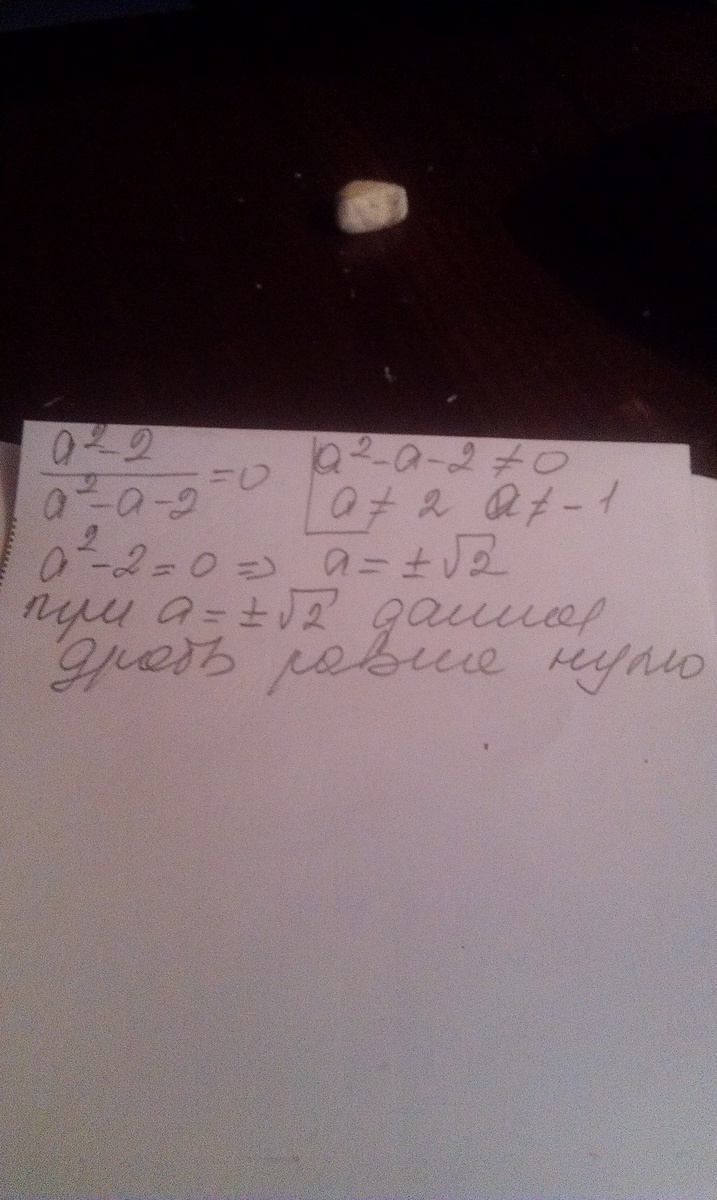 a²-2
───── = 0
a²-a-2
a²-a-2 ≠ 0
a ≠ 2 a ≠ -1
a²-2=0 => a = ±√2
при a = ±√2 данная
дробь равна нулю